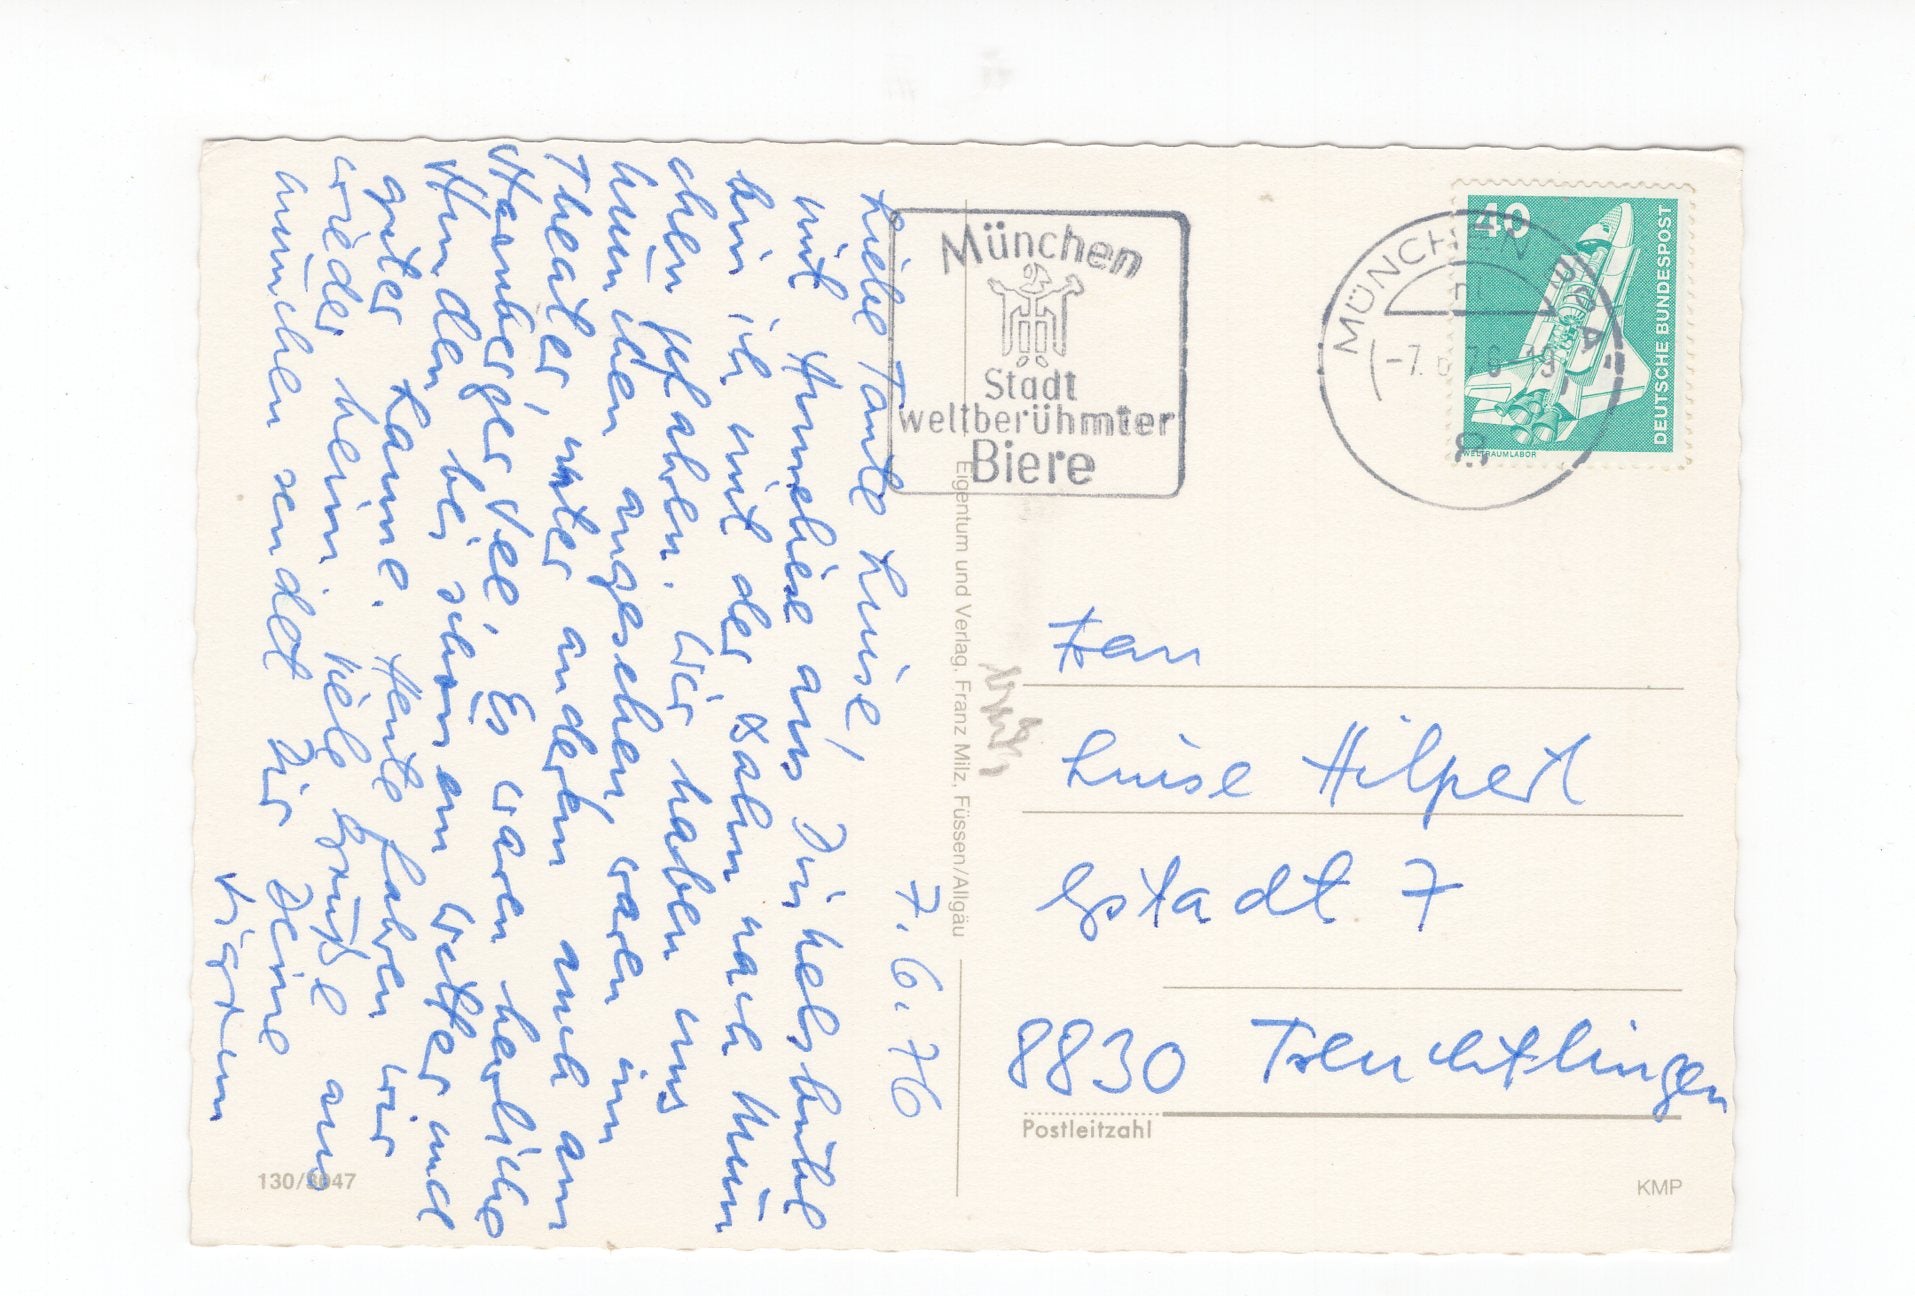 7.6.76
Liebe Tante Luise,
mit Anneliese aus Dinkelsbühl
bin ich mit der Bahn nach Mün
chen gefahren. Wir haben uns
München angesehen, waren im
Theater, unter anderem auch am
Starnberger See. Es waren herrliche
Stunden bei schönem Wetter und
guter Laune. Heute fahren wir
wieder heim. Viele Grüße aus
München sendet Dir Deine
Sigrun
München
Stadt
weltberühmter
Biere
MÜNCHEN
-7.6.76
8
40
DEUTSCHE BUNDESPOST
WELTRAUMLABOR
Eigentum und Verlag, Franz Milz, Füssen/Allgäu
Frau
Luise Hilpert
Gstadt 7
8830 Treuchtlingen
Postleitzahl
130/3047
KMP